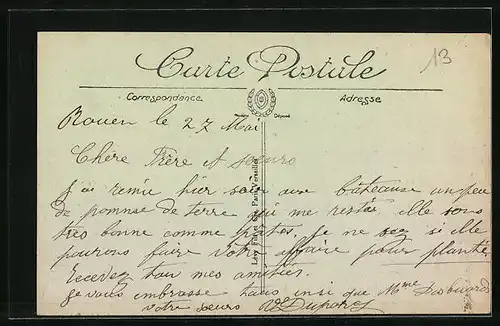 13
Carte Postale
Correspondance
Adresse
Marque Déposé
Rouen le 27 Mai
Chère Frère et soeurs
remie hier soir aux bateause un peu
de pommse de terre qui me restés. elle sons
très bonne comme pates. Je ne sez si elle
pourons faire votre affaire pour planté
recevez tou mes amitier.
Je vous embrasse tous insi que Mme
votre soeurs